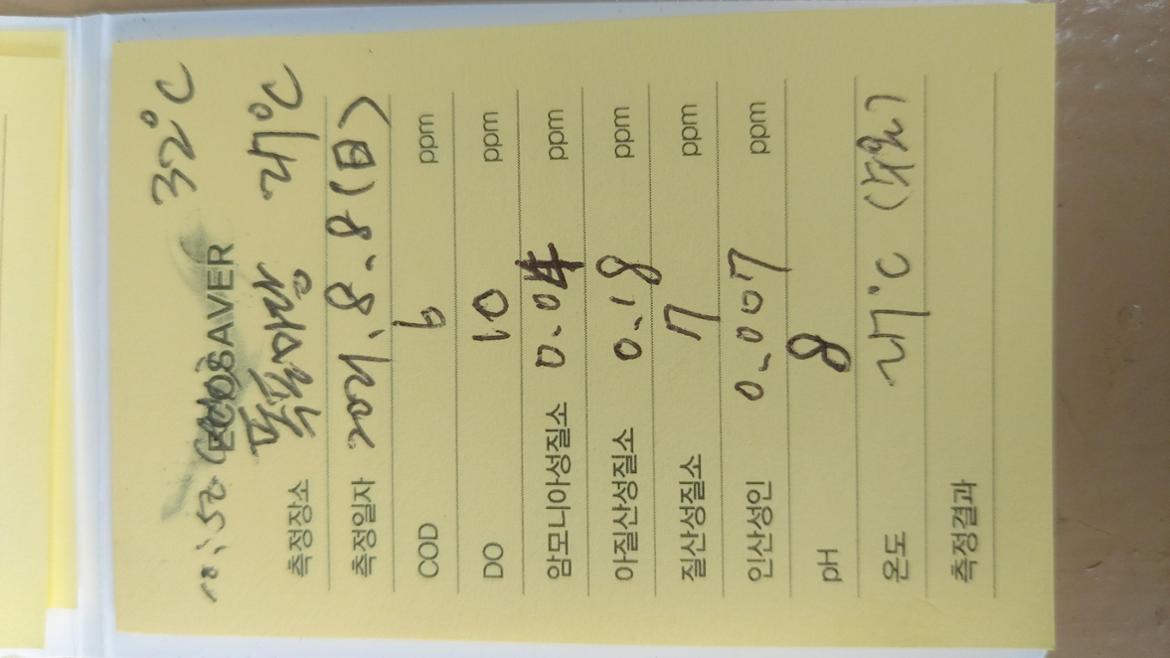 10:50 32°C
ECOSAVER
측정장소 27°C
측정일자 2021. 8. 8 (日)
COD 6 ppm
DO 10 ppm
암모니아성질소 0.04 ppm
아질산성질소 0.18 ppm
질산성질소 7 ppm
인산성인 0.007 ppm
pH 8
온도 27°C (수온)
측정결과